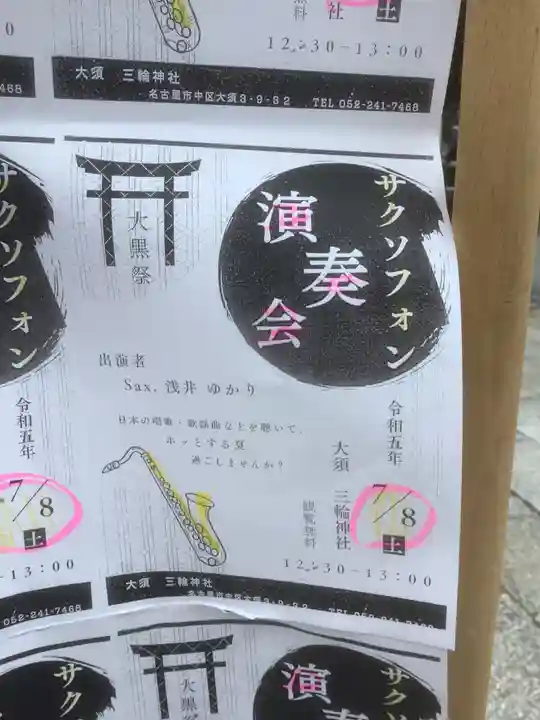 無料
神社
土
12:30-13:00
大須 三輪神社
名古屋市中区大須3-9-32 TEL 052-241-7468
7468
サクソフォン
演奏会
大黒祭
出演者
Sax. 浅井 ゆかり
日本の唱歌・歌謡曲などを聴いて、
ホッとする夏
過ごしませんか?
令和五年
7/8
土
大須 三輪神社
観覧無料
12:30-13:00
大須 三輪神社
名古屋市中区大須3-9-32
サクソフォン
令和五年
7/8
土
-13:00
052-241-7468
大黒祭
演奏
サクソ
サクソ